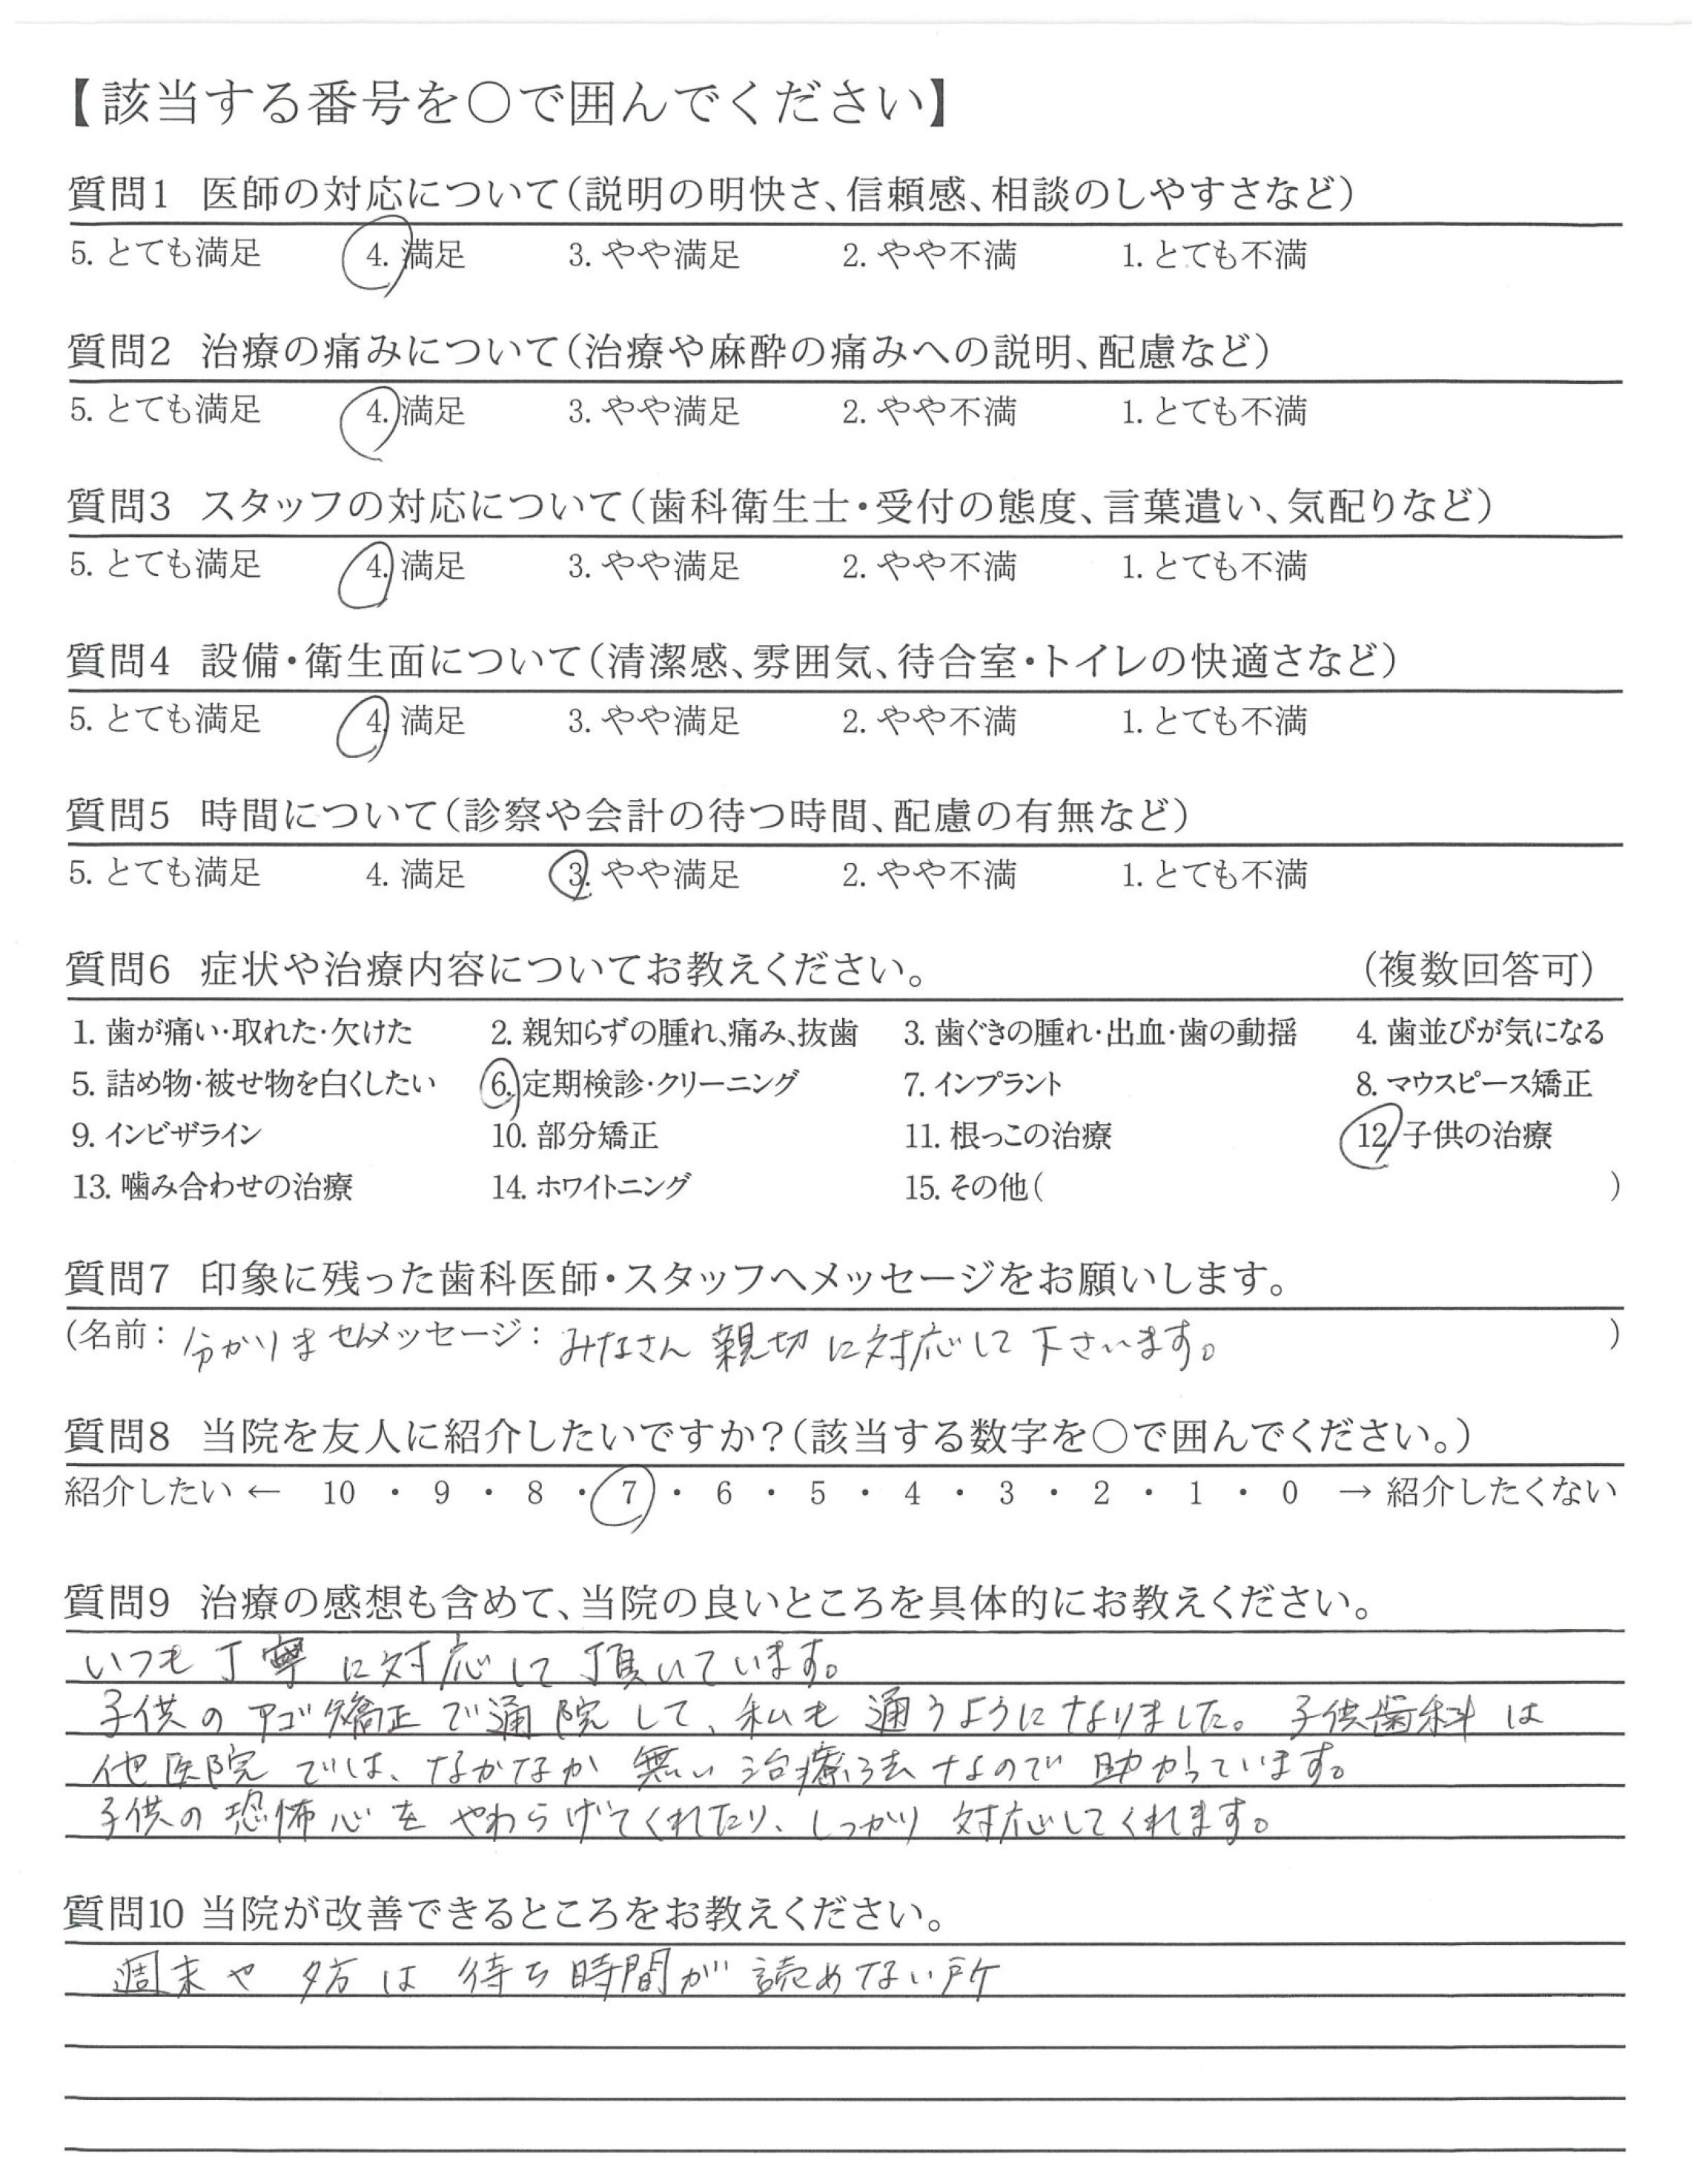 【該当する番号を○で囲んでください】
質問1 医師の対応について(説明の明快さ、信頼感、相談のしやすさなど)
5. とても満足 4. 満足 3. やや満足 2. やや不満 1. とても不満
質問2 治療の痛みについて(治療や麻酔の痛みへの説明、配慮など)
5. とても満足 4. 満足 3. やや満足 2. やや不満 1. とても不満
質問3 スタッフの対応について(歯科衛生士・受付の態度、言葉遣い、気配りなど)
5. とても満足 4. 満足 3. やや満足 2. やや不満 1. とても不満
質問4 設備・衛生面について(清潔感、雰囲気、待合室・トイレの快適さなど)
5. とても満足 4. 満足 3. やや満足 2. やや不満 1. とても不満
質問5 時間について(診察や会計の待つ時間、配慮の有無など)
5. とても満足 4. 満足 3. やや満足 2. やや不満 1. とても不満
質問6 症状や治療内容についてお教えください。 (複数回答可)
1. 歯が痛い・取れた・欠けた 2. 親知らずの腫れ、痛み、抜歯 3. 歯ぐきの腫れ・出血・歯の動揺 4. 歯並びが気になる
5. 詰め物・被せ物を白くしたい 6. 定期検診・クリーニング 7. インプラント 8. マウスピース矯正
9. インビザライン 10. 部分矯正 11. 根っこの治療 12. 子供の治療
13. 噛み合わせの治療 14. ホワイトニング 15. その他( )
質問7 印象に残った歯科医師・スタッフへメッセージをお願いします。
(名前: 分かりません メッセージ: みなさん 親切に対応して下さいます。 )
質問8 当院を友人に紹介したいですか?(該当する数字を○で囲んでください。)
紹介したい ← 10 ・ 9 ・ 8 ・ 7 ・ 6 ・ 5 ・ 4 ・ 3 ・ 2 ・ 1 ・ 0 → 紹介したくない
質問9 治療の感想も含めて、当院の良いところを具体的にお教えください。
いつも丁寧に対応して頂いています。
子供のアゴ矯正で通院して、私も通うようになりました。子供歯科は
他医院では、なかなか無い治療法なので助かっています。
子供の恐怖心をやわらげてくれたり、しっかり対応してくれます。
質問10 当院が改善できるところをお教えください。
週末や夕方は待ち時間が読めない所